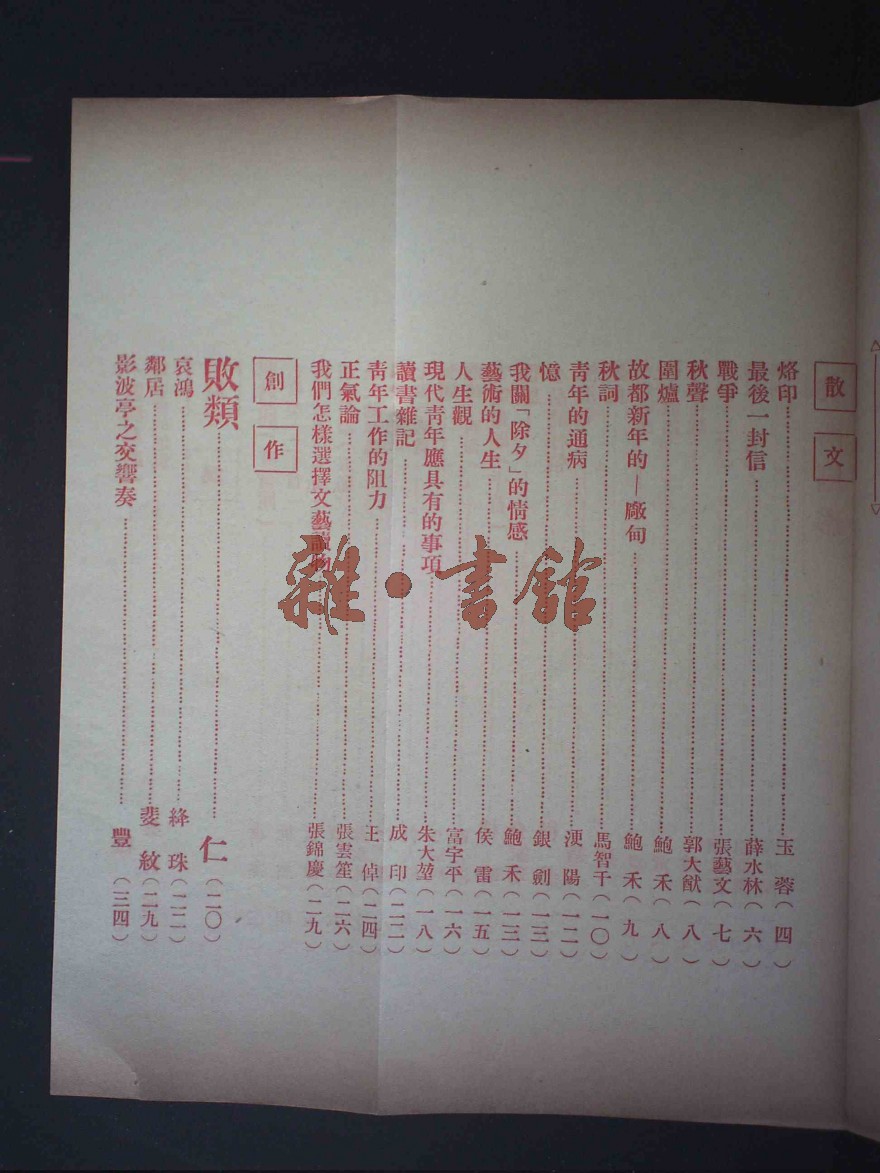 散文
烙印……玉蓉（四）
最後一封信……薛水林（六）
戰爭……張藝文（七）
秋聲……郭大猷（八）
圍爐……鮑禾（八）
故都新年的—廠甸……鮑禾（九）
秋詞……馬智千（一〇）
青年的通病……浭陽（一二）
憶……銀劍（一三）
我關「除夕」的情感……鮑禾（一三）
藝術的人生……侯雷（一五）
人生觀……富字平（一六）
現代青年應具有的事項……朱大堃（一八）
讀書雜記……成印（二二）
青年工作的阻力……王倬（二四）
正氣論……張雲笙（二六）
我們怎樣選擇文藝讀物……張錦慶（二九）
創作
敗類……仁（二〇）
哀鴻……絳珠（二二）
鄰居……斐紋（二九）
影波亭之交響奏……豐（三四）
雜·書館